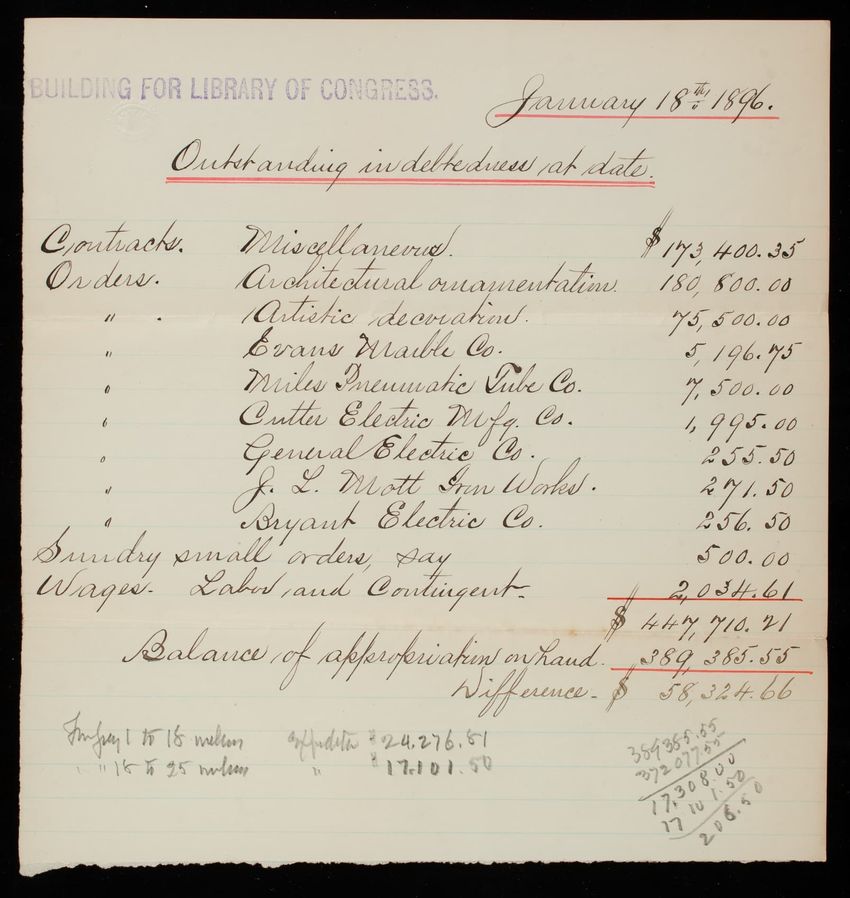 BUILDING FOR LIBRARY OF CONGRESS.
January 18th 1896.
Outstanding indebtedness at date.
Contracts. Miscellaneous. $173,400.35
Orders. Architectural ornamentation. 180,800.00
" . Artistic decoration. 75,500.00
" Evans Marble Co. 5,196.75
" Miles Pneumatic Tube Co. 7,500.00
" Cutter Electric Mfg. Co. 1,995.00
" General Electric Co. 255.50
" J. L. Mott Iron Works. 271.50
" Bryant Electric Co. 256.50
Sundry small orders, say 500.00
Wages. Labor and Contingent. 2,034.61
$ 447,710.21
Balance of appropriation on hand. 389,385.55
Difference. $ 58,324.66
1 to 18 $24,276.81
" 18 to 25 " $17,101.50
389385.55
372077.55
17,308.00
17 101.50
206.50